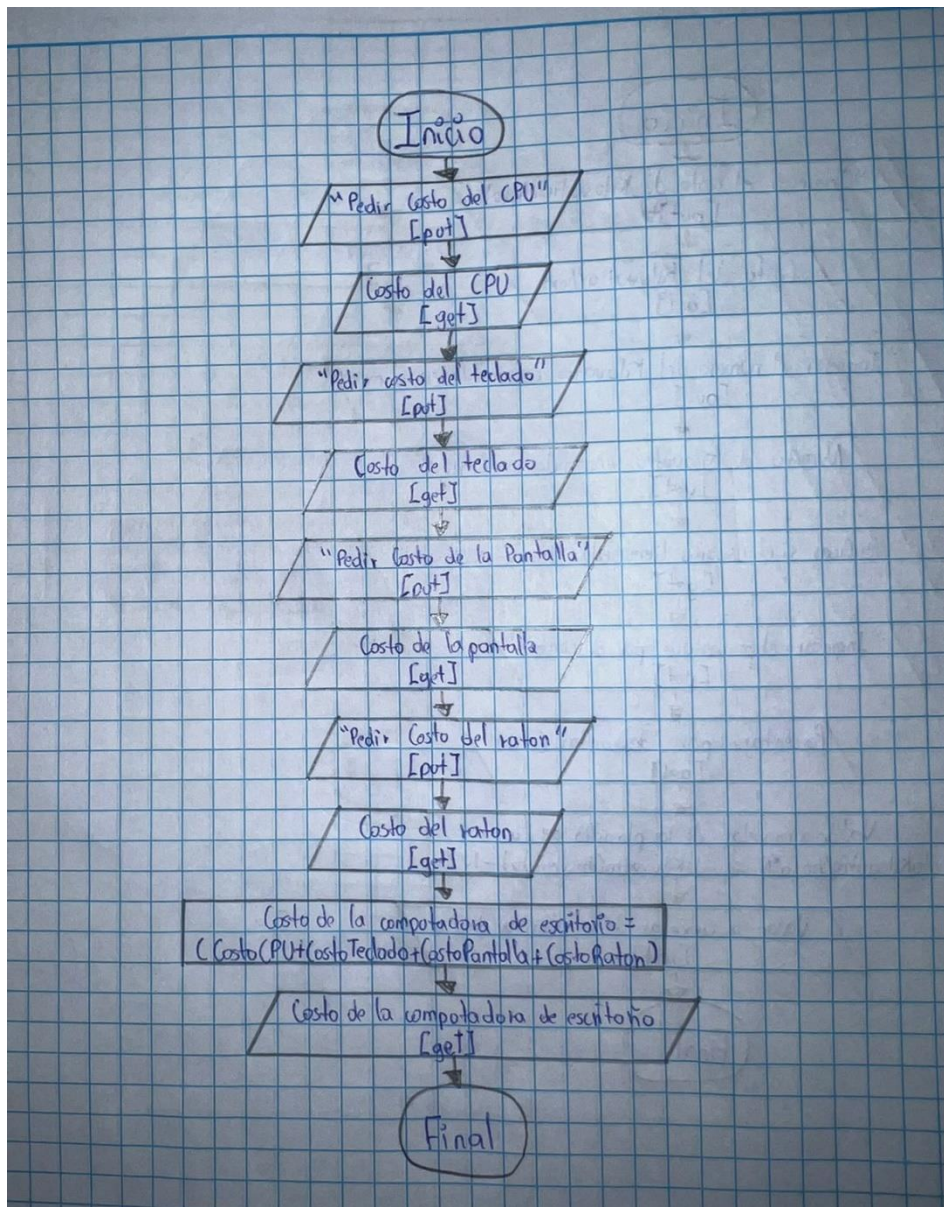 Inicio
"Pedir Costo del CPU"
[put]
Costo del CPU
[get]
"Pedir costo del teclado"
[put]
Costo del teclado
[get]
"Pedir Costo de la Pantalla"
[put]
Costo de la pantalla
[get]
"Pedir Costo del raton"
[put]
Costo del raton
[get]
Costo de la computadora de escritorio =
(CostoCPU+CostoTeclado+CostoPantalla+CostoRaton)
Costo de la computadora de escritorio
[get]
Final